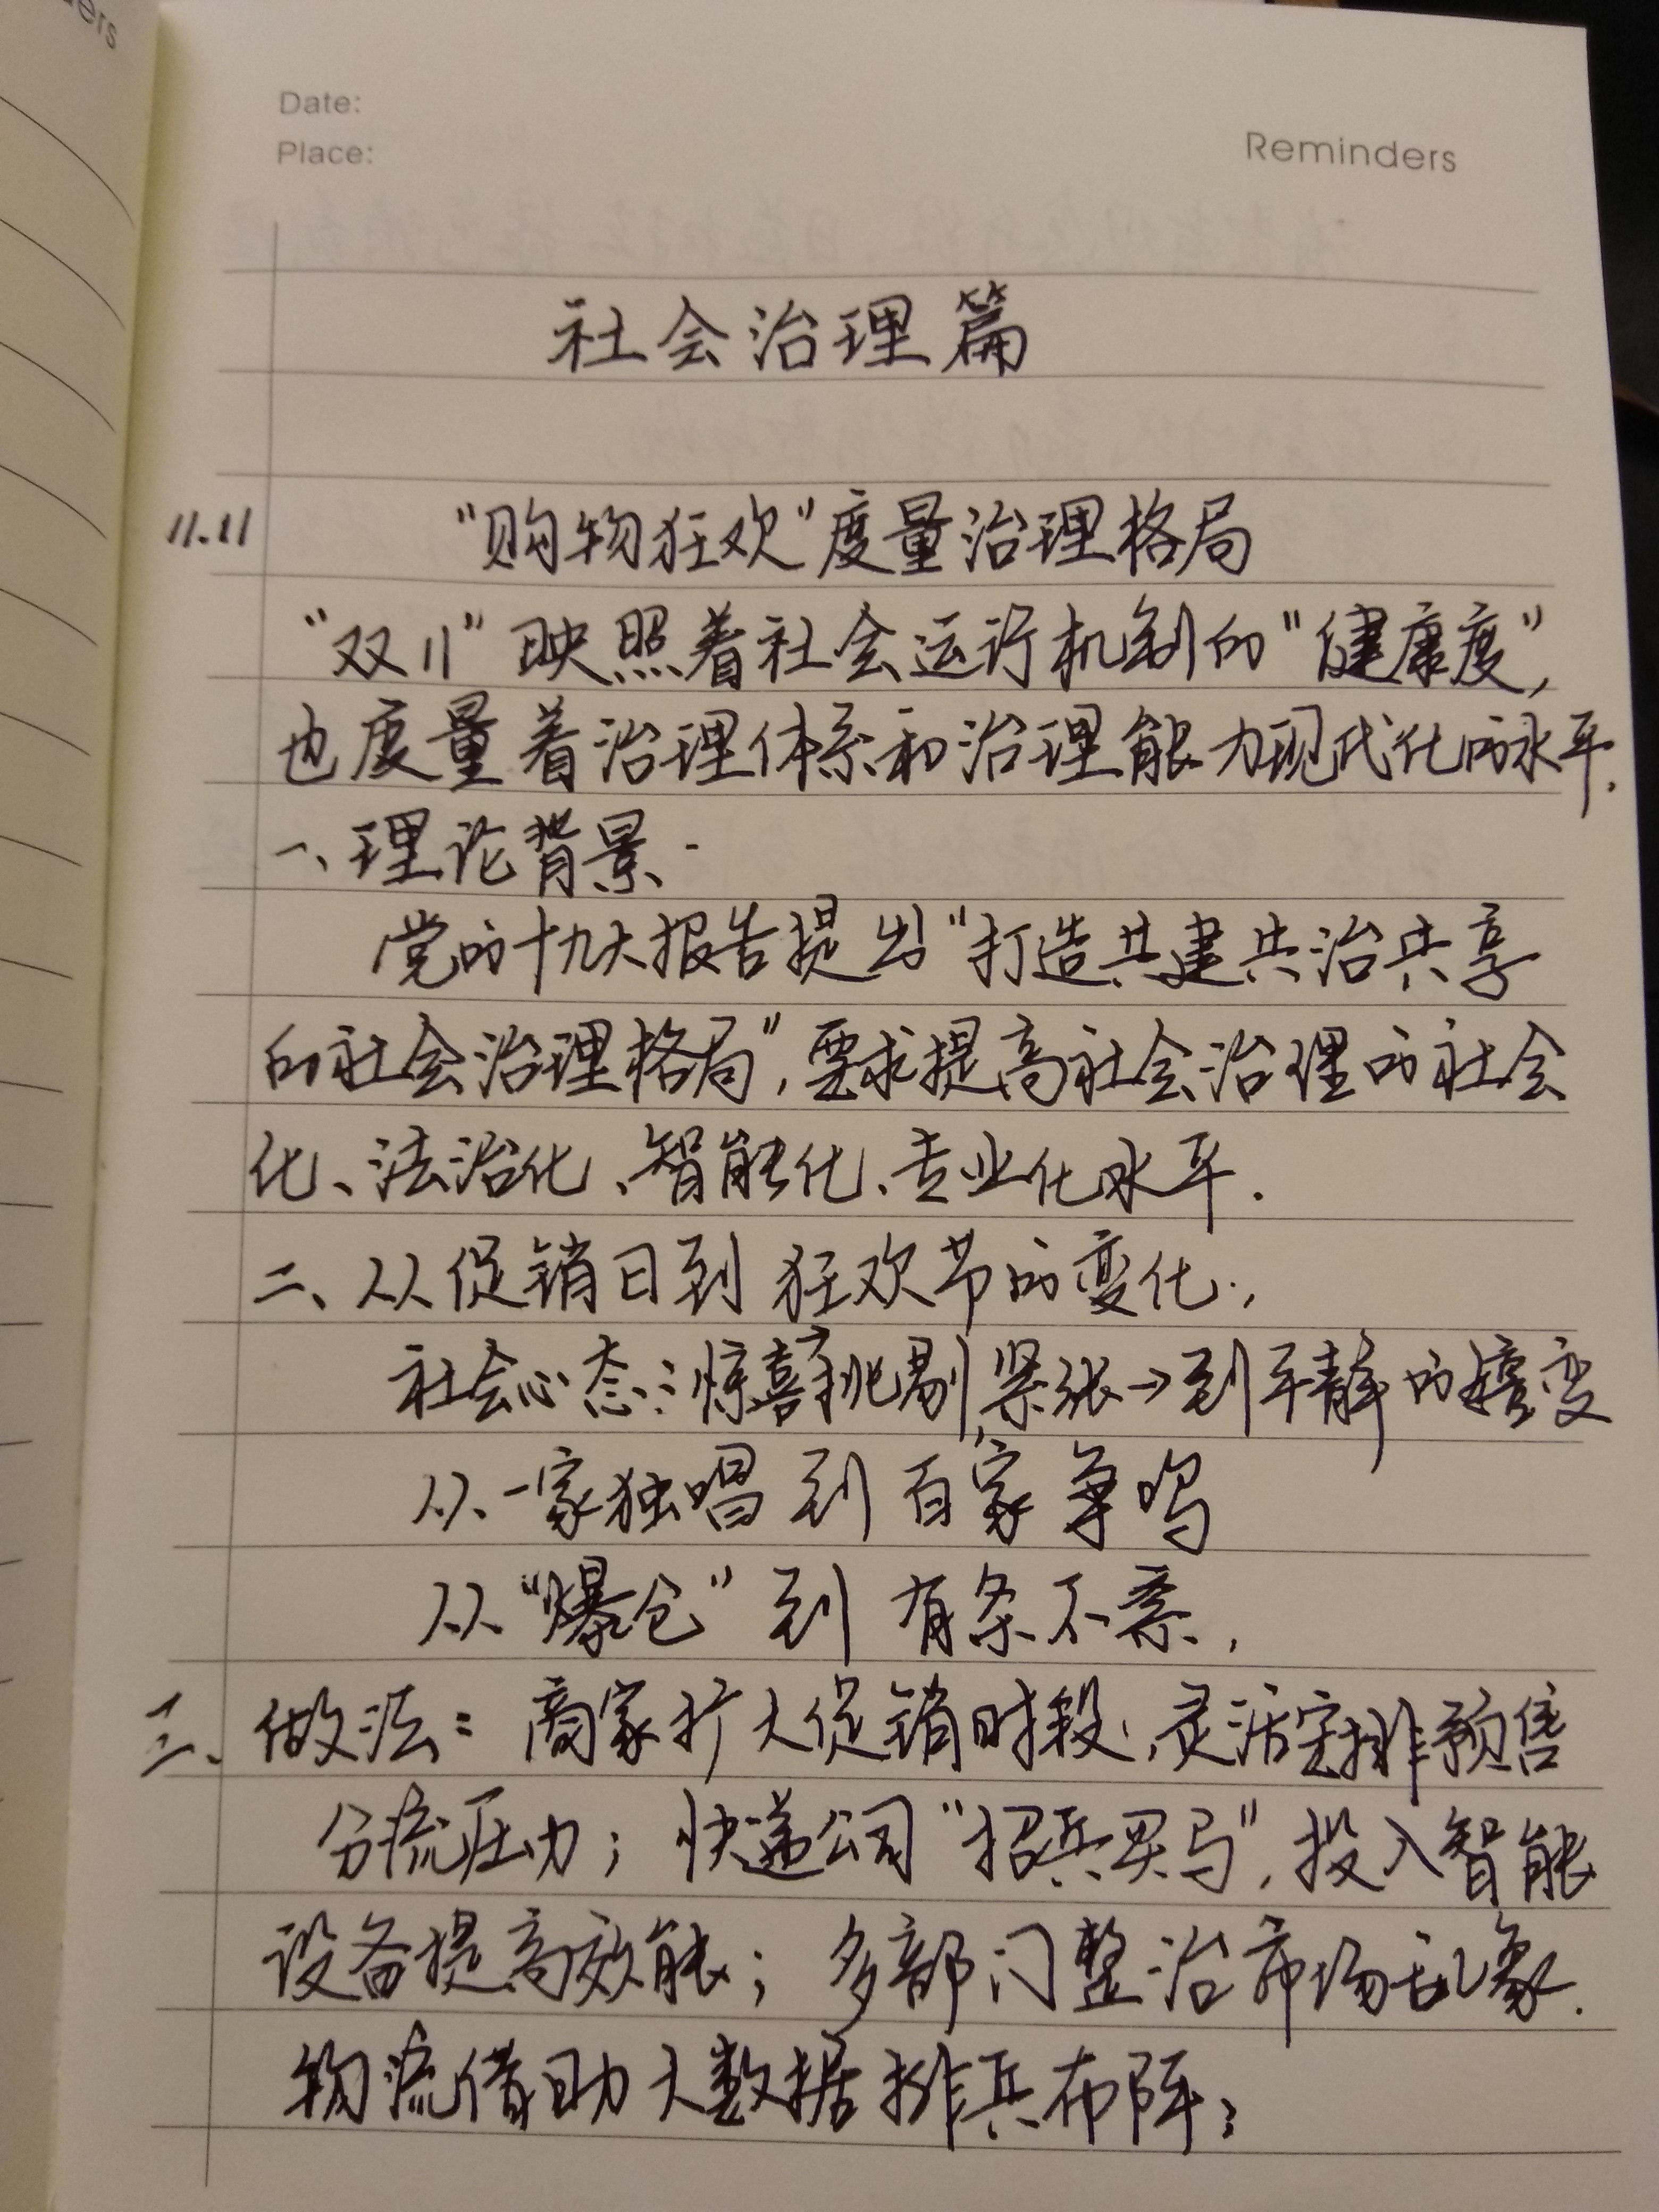 ers
Date:
Place:
Reminders
社会治理篇
11.11 “购物狂欢”度量治理格局
“双11”映照着社会运行机制的“健康度”,
也度量着治理体系和治理能力现代化的水平.
一、理论背景.
党的十九大报告提出“打造共建共治共享
的社会治理格局”,要求提高社会治理的社会
化、法治化、智能化、专业化水平.
二、从促销日到狂欢节的变化.
社会心态:惊喜挑剔,紧张→到平静的嬗变
从一家独唱到百家争鸣
从“爆仓”到有条不紊.
三、做法:商家扩大促销时段,灵活安排预售
分流压力;快递公司“招兵买马”,投入智能
设备提高效能;多部门整治市场乱象.
物流借助大数据排兵布阵;